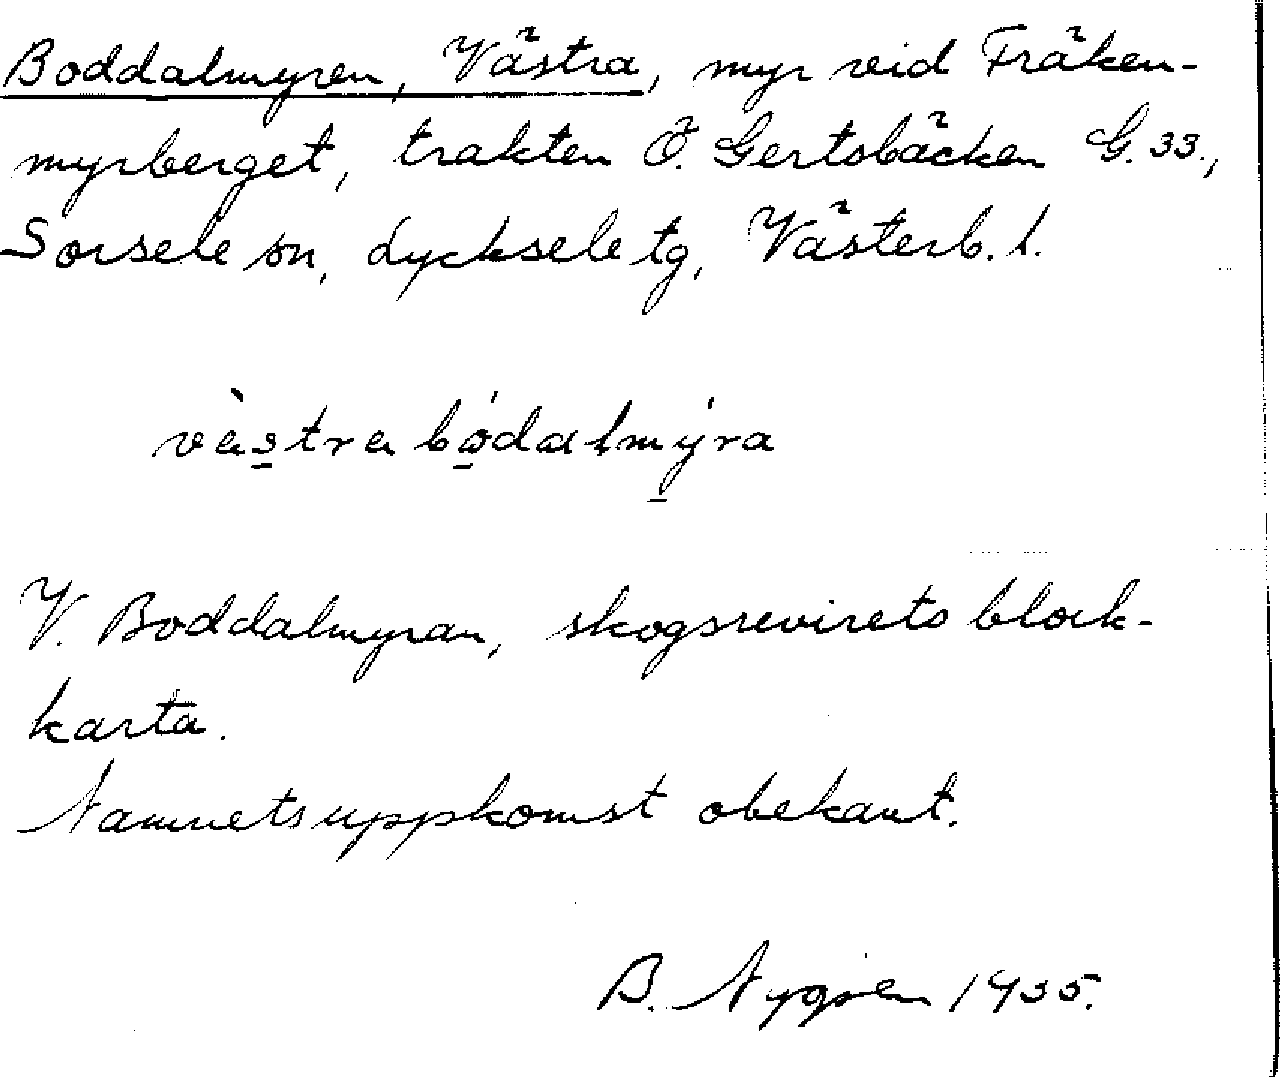 Boddalmyren, Västra, myr vid Fräken-
myrberget, trakten Ö. Gertsbäcken G. 33.,
Sorsele sn, Lycksele tg, Västerb. l.
västra bo̱dalmy̱ra
V. Boddalmyran, skogsrevirets block-
karta.
Namnets uppkomst obekant.
B. Nygren 1935.